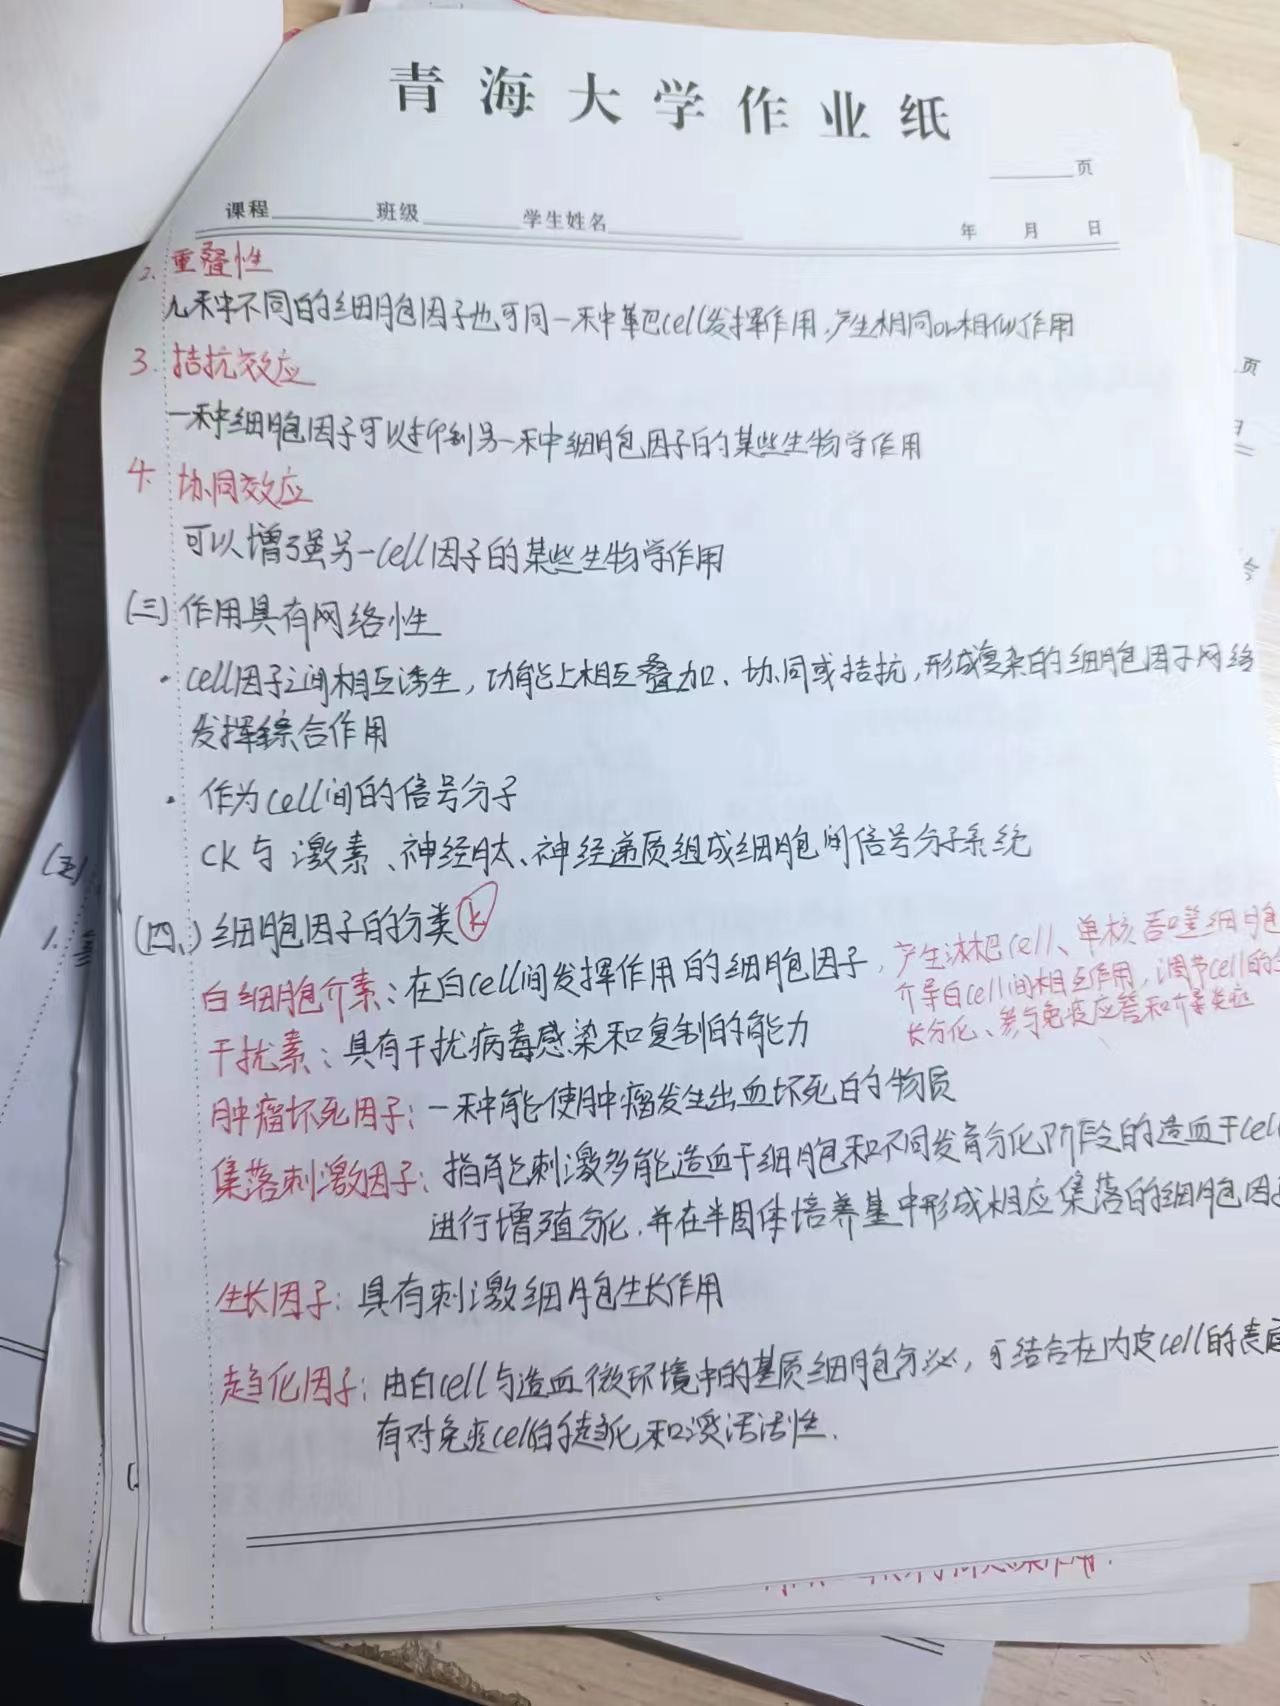 青海大学作业纸
页
课程 班级 学生姓名 年 月 日
2. 重叠性
几种不同的细胞因子也可同一种靶cell发挥作用,产生相同or相似作用
3. 拮抗效应
一种细胞因子可以抑制另一种细胞因子的某些生物学作用
4. 协同效应
可以增强另一cell因子的某些生物学作用
(三) 作用具有网络性
· cell因子之间相互诱生,功能上相互叠加、协同或拮抗,形成复杂的细胞因子网络
发挥综合作用
· 作为cell间的信号分子
CK与激素、神经肽、神经递质组成细胞间信号分子系统
(四、) 细胞因子的分类
白细胞介素:在白cell间发挥作用的细胞因子,
产生淋巴cell、单核吞噬细胞
介导白cell间相互作用,调节cell的生
长分化、参与免疫应答和介导炎症
干扰素:具有干扰病毒感染和复制的能力
肿瘤坏死因子:一种能使肿瘤发生出血坏死的物质
集落刺激因子:指能刺激多能造血干细胞和不同发育分化阶段的造血干cell
进行增殖分化,并在半固体培养基中形成相应集落的细胞因子
生长因子:具有刺激细胞生长作用
趋化因子:由白cell与造血微环境中的基质细胞分泌,可结合在内皮cell的表面
有对免疫cell的趋化和激活活性.
页
(五)
1.